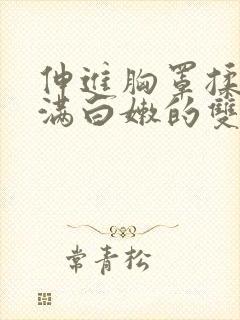 伸進胸罩揉
滿白嫩的雙
常青松